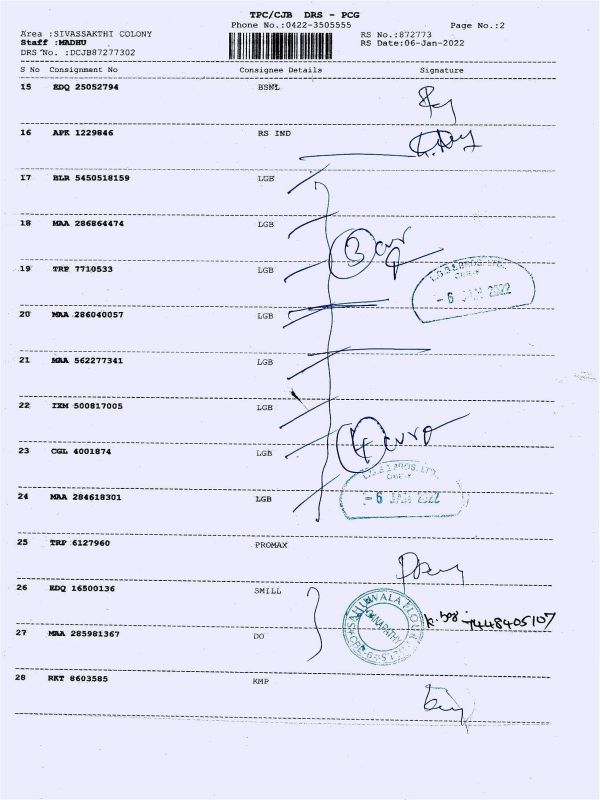 TPC/CJB DRS - PCG
Phone No.:0422-3505555
Page No.:2
Area :SIVASSAKTHI COLONY
Staff :MADHU
DRS No. :DCJB87277302
RS No.:872773
RS Date:06-Jan-2022
S No Consignment No Consignee Details Signature
15 EDQ 25052794 BSNL
16 APK 1229846 RS IND
17 BLR 5450518159 LGB
18 MAA 286864474 LGB
3
19 TRP 7710533 LGB
L.G.B & BROS. LTD.,
- 6 JAN 2022
20 MAA 286040057 LGB
21 MAA 562277341 LGB
22 IXM 500817005 LGB
4
23 CGL 4001874 LGB
L.G.B & BROS. LTD.,
- 6 JAN 2022
24 MAA 284618301 LGB
25 TRP 6127960 PROMAX
26 EDQ 16500136 SMILL
7448405107
27 MAA 285981367 DO
28 RKT 8603585 KMP